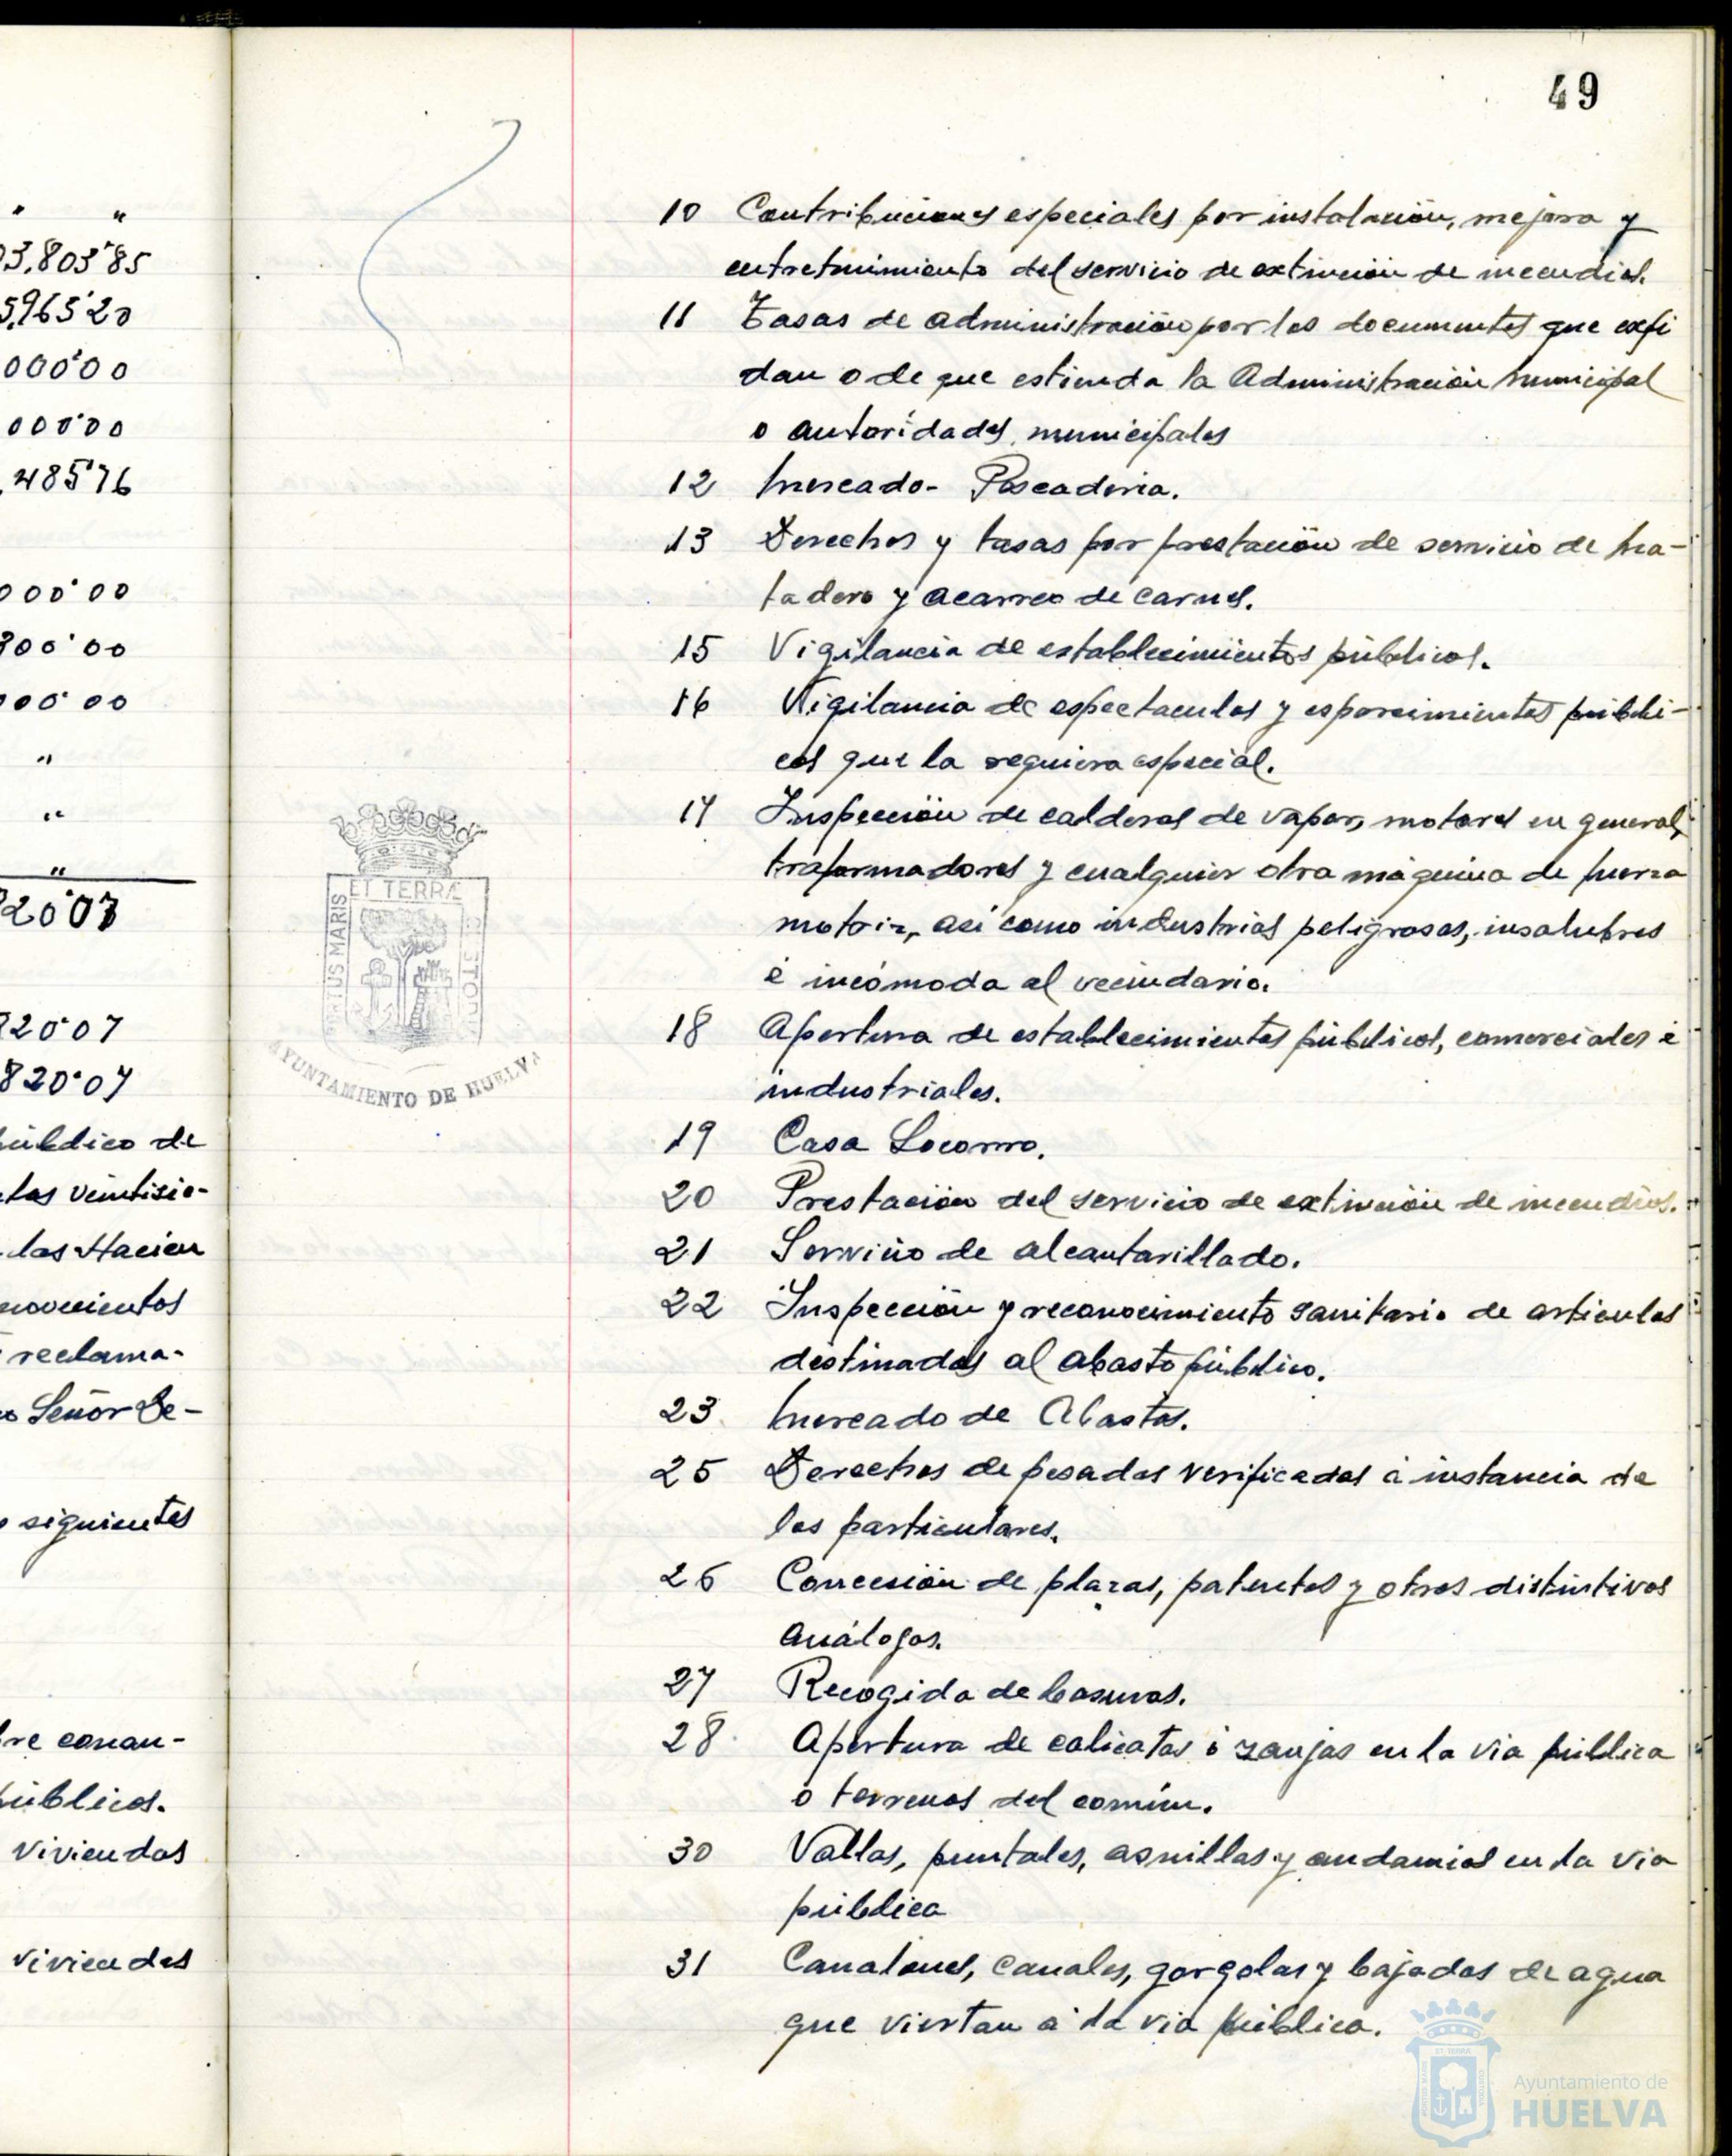 " "
03.803'85
5,965'20
000'00
00'00
,485'76
000'00
300'00
000'00
"
"
"
20'07
20'07
820'07
público de
tos veintisie-
las Hacien
novecientos
reclama-
Señor De-
siguientes
re conan-
públicos.
viviendas
viviendas
49
10 Contribuciones especiales por instalación, mejora y
entretenimiento del servicio de extinción de incendios.
11 Tasas de administración por los documentos que expi
dan o de que estienda la Administración Municipal
o autoridades municipales
12 Mercado- Pescaderia.
13 Derechos y tasas por prestación de servicio de Ma-
tadero y acarreo de carnes.
15 Vigilancia de establecimientos públicos.
16 Vigilancia de espectaculos y esparcimientos públi-
cos que la requiera especial.
17 Inspección de calderas de vapor, motores en general,
traformadores y cualquier otra máquina de fuerza
motriz, así como industrias peligrosas, insalubres
é incómoda al vecindario.
18 Apertura de establecimientos públicos, comerciales é
industriales.
19 Casa Socorro.
20 Prestación del servicio de extinción de incendios.
21 Servicio de alcantarillado.
22 Inspección y reconocimiento sanitario de articulos
destinados al abasto público.
23 Mercado de Abastos.
25 Derechos de pesadas verificadas á instancia de
los particulares.
26 Concesión de plazas, patentes y otros distintivos
análogos.
27 Recogida de basuras.
28 Apertura de calicatas ó zanjas en la via pública
o terrenos del común.
30 Vallas, puntales, asnillas y andamios en la via
pública
31 Canalones, canales, gorgolas y bajadas de agua
que viertan á la via pública.
PORTUS MARIS ET TERRÆ CUSTODIA
AYUNTAMIENTO DE HUELVA
Ayuntamiento de
HUELVA